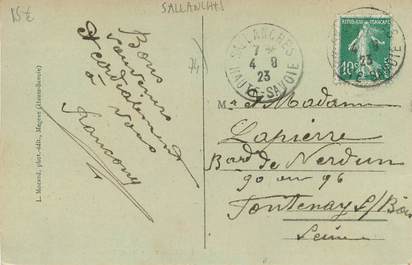 15€
SALLANCHES
74)
Bons
souvenirs
et cordialement
à vous
SALLANCHES
7
4 9
23
HAUTE-SAVOIE
REPUBLIQUE FRANCAISE
10c
L. Morand, phot.-édit., Magnez (Haute-Savoie)
Mr & Madame
Lapierre
Bard de Verdun
90 ou 96
Fontenay s/Bois
Seine